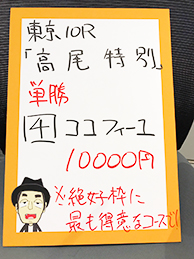 東京10R
「高尾特別」
単勝
4 ココフィーユ
10000円
※絶好枠に
最も得意なコースで!